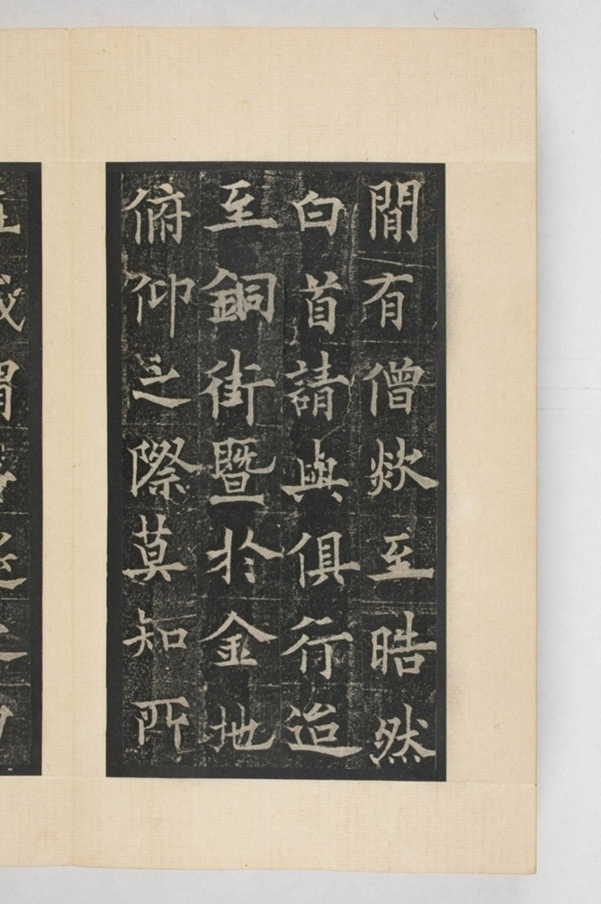 間有僧欻至晧然
白首請與俱行迨
至銅街暨於金地
俯仰之際莫知所